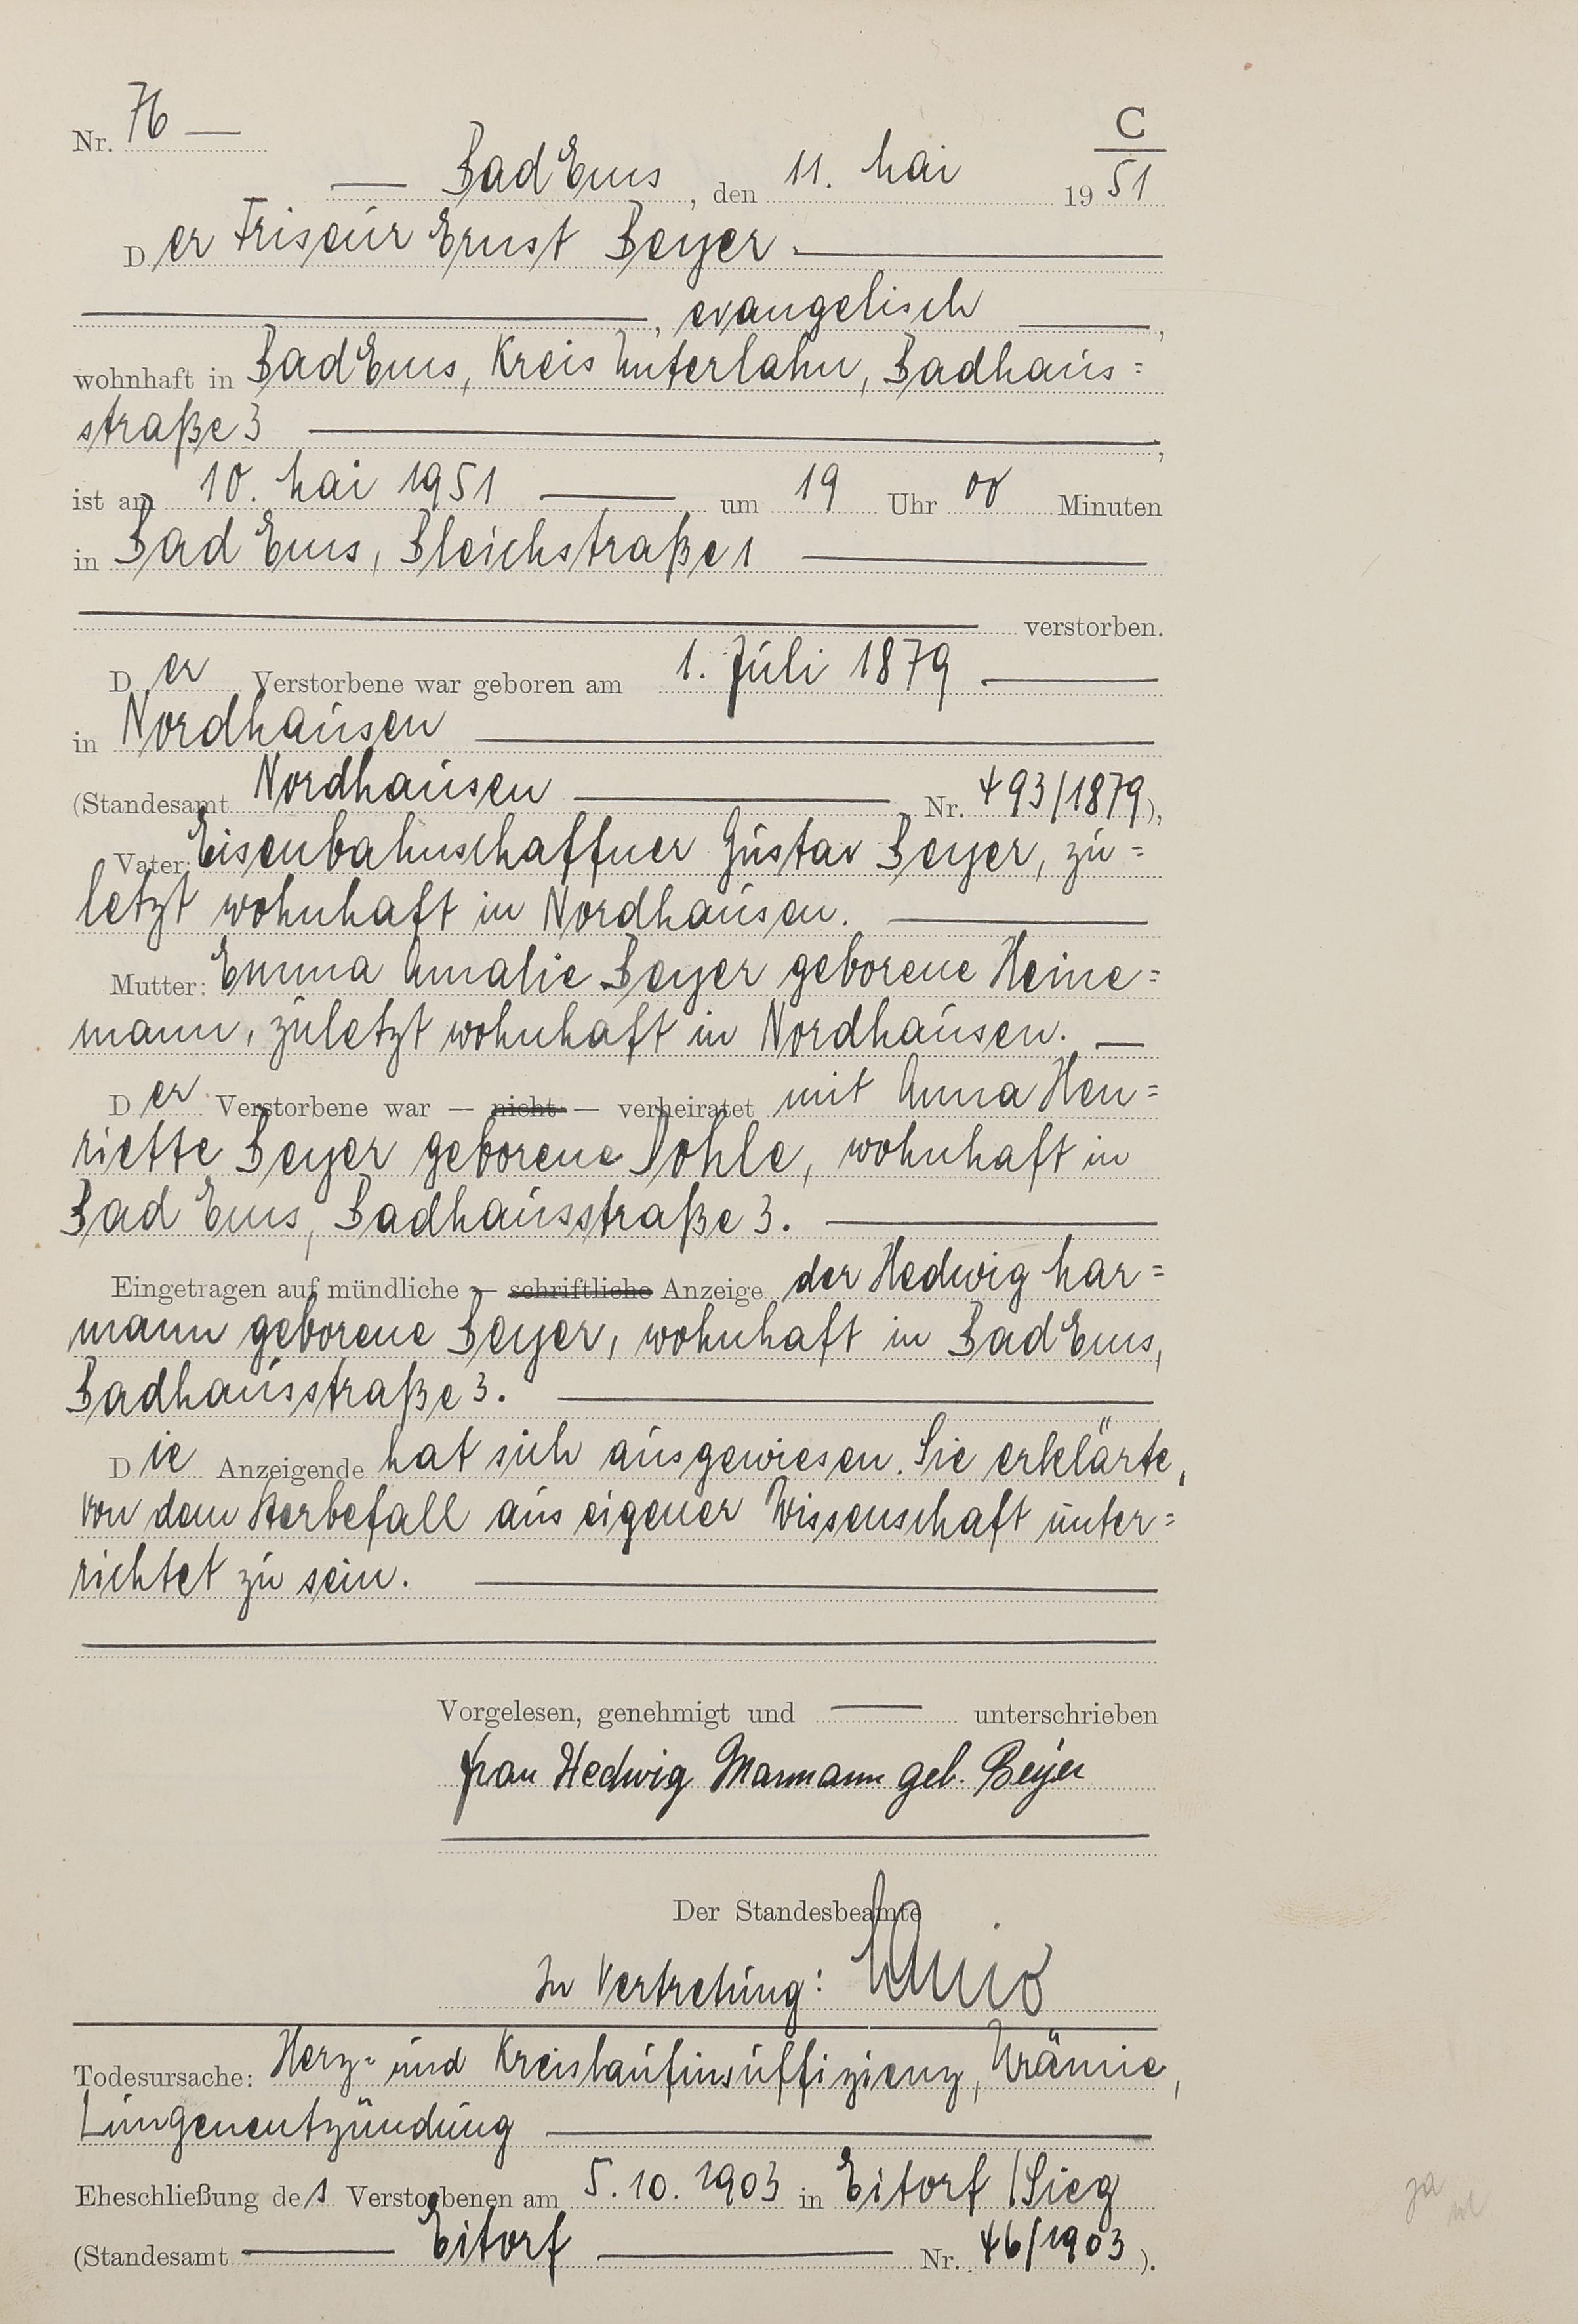 Nr. 76 —
C
— Bad Ems, den 11. Mai 1951
Der Friseur Ernst Beyer
, evangelisch ,
wohnhaft in Bad Ems, Kreis Unterlahn, Badhaus=
straße 3 ,
ist am 10. Mai 1951 — um 19 Uhr 00 Minuten
in Bad Ems, Bleichstraße 1
verstorben.
Der Verstorbene war geboren am 1. Juli 1879
in Nordhausen
(Standesamt Nordhausen Nr. 493/1879),
Vater: Eisenbahnschaffner Gustav Beyer, zu=
letzt wohnhaft in Nordhausen.
Mutter: Emma Amalie Beyer geborene Heine=
mann, zuletzt wohnhaft in Nordhausen. —
Der Verstorbene war — nicht — verheiratet mit Anna Hen=
riette Beyer geborene Pohle, wohnhaft in
Bad Ems, Badhausstraße 3.
Eingetragen auf mündliche — schriftliche Anzeige der Hedwig Mar=
mann geborene Beyer, wohnhaft in Bad Ems,
Badhausstraße 3.
Die Anzeigende hat sich ausgewiesen. Sie erklärte,
von dem Sterbefall aus eigener Wissenschaft unter=
richtet zu sein.
Vorgelesen, genehmigt und — unterschrieben
Frau Hedwig Marmann geb. Beyer
Der Standesbeamte
In Vertretung:
Todesursache: Herz= und Kreislaufinsuffizienz, Urämie,
Lungenentzündung
Eheschließung des Verstorbenen am 5.10.1903 in Eitorf/Sieg
(Standesamt — Eitorf — Nr. 46/1903).
ja